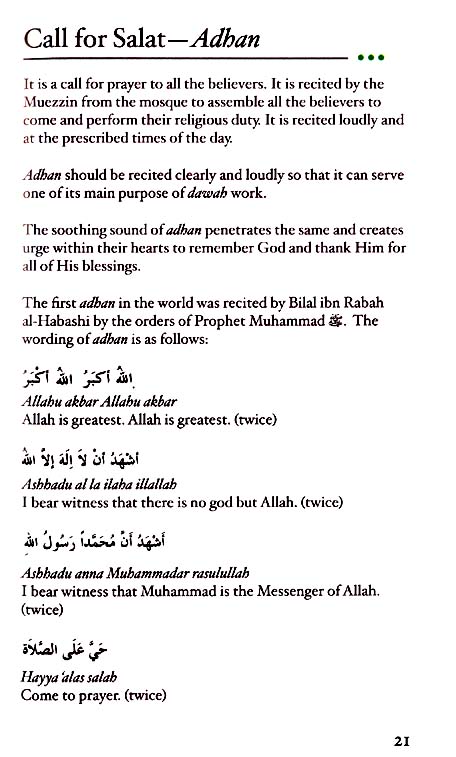 Call for Salat—Adhan
It is a call for prayer to all the believers. It is recited by the
Muezzin from the mosque to assemble all the believers to
come and perform their religious duty. It is recited loudly and
at the prescribed times of the day.
Adhan should be recited clearly and loudly so that it can serve
one of its main purpose of dawah work.
The soothing sound of adhan penetrates the same and creates
urge within their hearts to remember God and thank Him for
all of His blessings.
The first adhan in the world was recited by Bilal ibn Rabah
al-Habashi by the orders of Prophet Muhammad ﷺ. The
wording of adhan is as follows:
اللهُ أَكْبَرُ اللهُ أَكْبَرُ
Allahu akbar Allahu akbar
Allah is greatest. Allah is greatest. (twice)
أَشْهَدُ أَنْ لاَ إِلَهَ إِلاَّ اللهُ
Ashhadu al la ilaha illallah
I bear witness that there is no god but Allah. (twice)
أَشْهَدُ أَنَّ مُحَمَّداً رَسُولُ اللهِ
Ashhadu anna Muhammadar rasulullah
I bear witness that Muhammad is the Messenger of Allah.
(twice)
حَيَّ عَلَى الصَّلاَة
Hayya 'alas salah
Come to prayer. (twice)
21